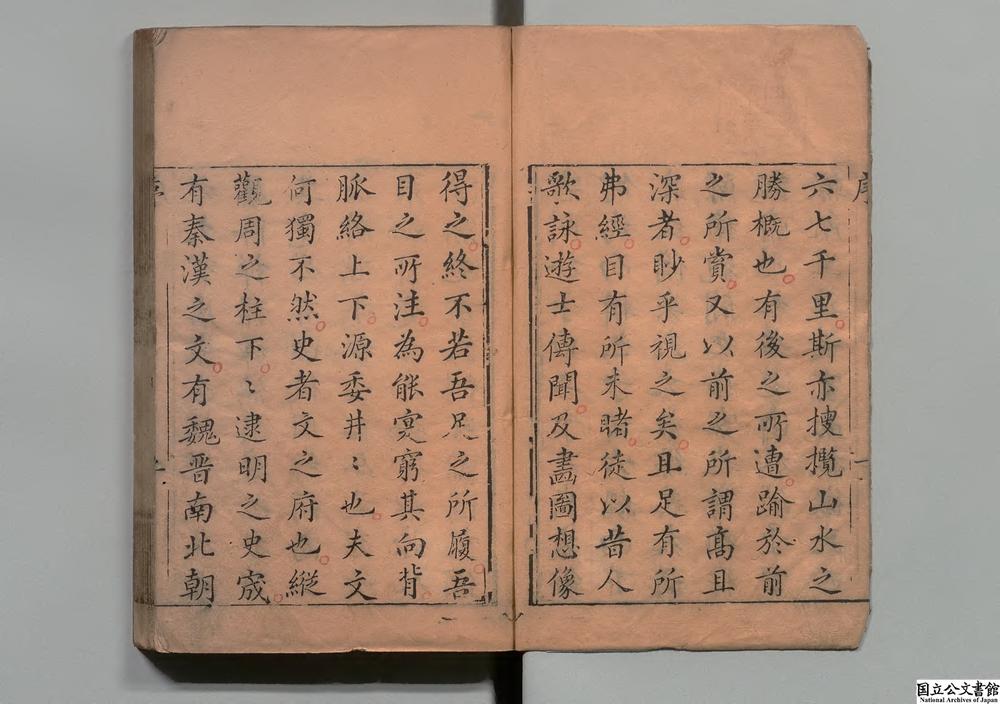 序
六七千里斯亦搜攬山水之
勝概也有後之所遭踰於前
之所賞又以前之所謂高且
深者眇乎視之矣且足有所
弗經目有所未睹徒以昔人
歌詠遊士傳聞及畵圖想像
得之終不若吾足之所履吾
目之所注為能寔窮其向背
脈絡上下源委井〻也夫文
何獨不然史者文之府也縱
觀周之柱下〻逮明之史宬
有秦漢之文有魏晋南北朝
国立公文書館
National Archives of Japan